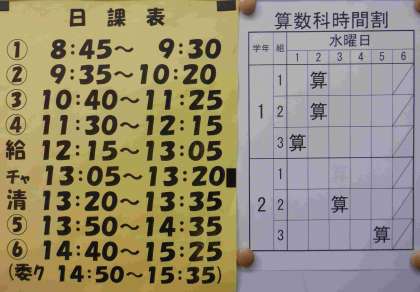 日課表
① 8:45～ 9:30
② 9:35～10:20
③ 10:40～11:25
④ 11:30～12:15
給 12:15～13:05
チャ 13:05～13:20
清 13:20～13:35
⑤ 13:50～14:35
⑥ 14:40～15:25
(委ク 14:50～15:35)
算数科時間割
学年 組 水曜日
1 2 3 4 5 6
1
1 算
2 算
3 算
2
1
2 算
3 算